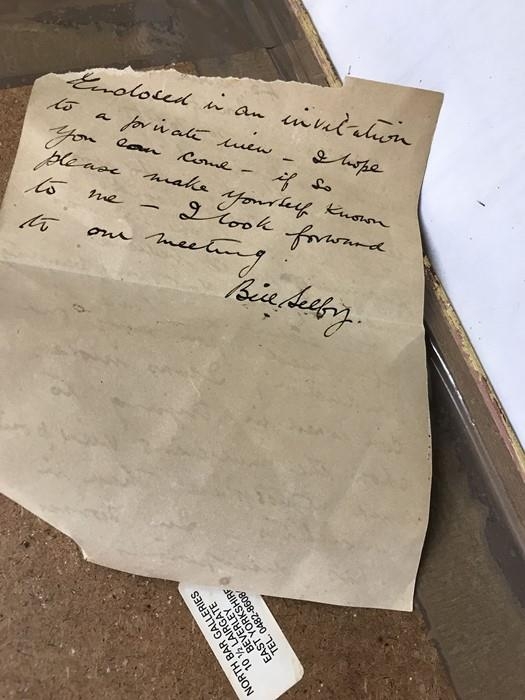 Enclosed is an invitation
to a private view - I hope
you can come - if so
please make yourself known
to me - I look forward
to our meeting.
Bill Selby.
NORTH BAR GALLERIES
10 ½ LAIRGATE
BEVERLEY
EAST YORKSHIRE
TEL 0482-8608